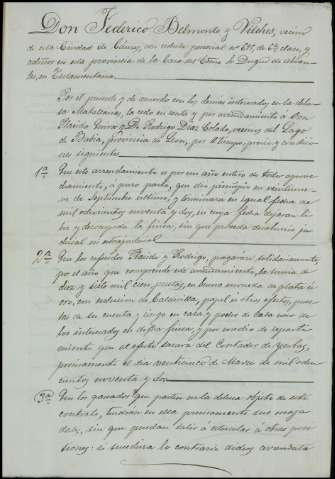 Don Federico Belmonte y Vilches, vecino
de esta Ciudad de Cáceres, con cédula personal nº 617 de 6ª clase, y
en esta provincia de la Casa del Exmo. Sr. Duque de
en Testamentaria.
Por el presente y de acuerdo con los demás interesados en la dehesa
Matallanas, la cedo en renta y por arrendamiento a Don
Plácido y D. Rodrigo Díaz Colado, vecinos del Lago
de Babia, provincia de León, por el tiempo, precio y condiciones
siguientes
1ª En este arrendamiento es por un año entero de todo aprovechamiento,
a puro pasto, que dió principio en veintinueve
de Septiembre último, y terminará en igual fecha de
mil ochocientos noventa y dos, en cuya fecha dejarán libre
y desocupada la finca, sin que preceda desahucio judicial
ni extrajudicial
2ª Que los referidos Plácido y Rodrigo, pagarán solidariamente
por el año que comprende este arrendamiento, la suma de
diez y siete mil cien pesetas, en buena moneda de plata ú
oro, con exclusión de Calderilla, papel ú otros efectos, puestas
de su cuenta y riesgo en casa y poder de cada uno de
los interesados en dicha finca, y por medio de repartimiento
que al efecto sacará del Contador de Yerbas,
precisamente el día veinticinco de Marzo de mil ochocientos
noventa y dos
3ª Que los ganados que pasten en la dehesa objeto de este
contrato, tendrán en ella precisamente sus majadas,
sin que puedan salir á á otras posesiones:
si sucediera lo contrario